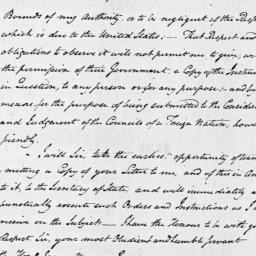 Bounds of my Authority, or to be negligent of the Respe
which is due to the United States:— That Respect and
obligations to observe it will not permit me to give, or
the permission of their Government, a Copy of the Instru
in Question, to any person or for any purpose:— and
means for the purpose of being submitted to the Conside
and Judgement of the Councils of a Foreign Nation, how
friendly.
I will Sir, take the earliest opportunity of tran
mitting a Copy of your Letter to me, and of this in An
to it, to the Secretary of State, and will immediately a
punctually execute such Orders and Instructions as I
receive on the Subject.— I have the Honour to be with g
Respect Sir, your most Obedient and humble Servant